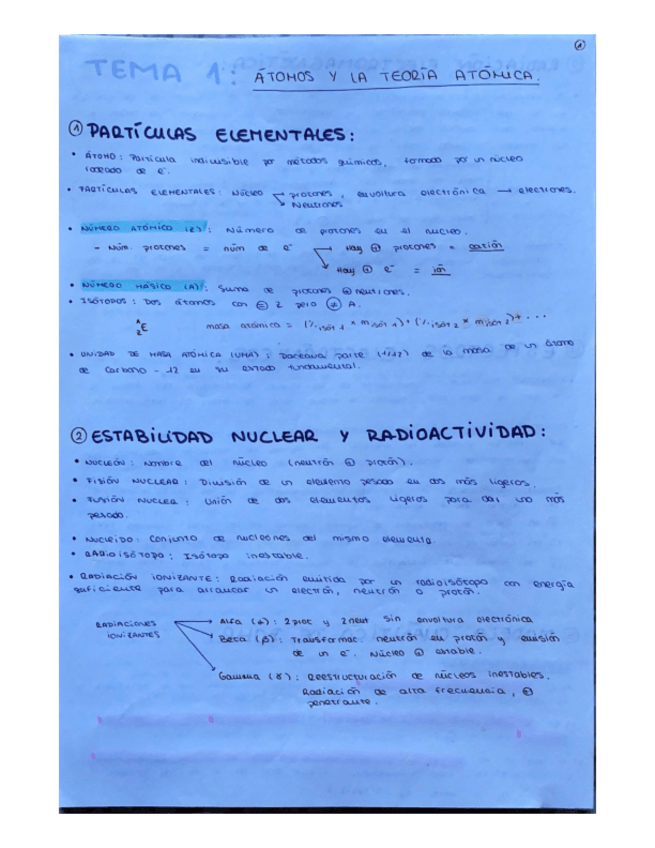 ①
TEMA 1: ÁTOMOS Y LA TEORÍA ATÓMICA.
① PARTÍCULAS ELEMENTALES:
• ÁTOMO: Partícula indivisible por métodos químicos, formado por un núcleo
rodeado de e⁻.
• PARTÍCULAS ELEMENTALES: Núcleo → protones, envoltura electrónica → electrones.
→ Neutrones
• NÚMERO ATÓMICO (Z): Número de protones en el núcleo.
- Núm. protones = núm de e⁻ → Hay ⊕ protones = catión
→ Hay ⊕ e⁻ = ión
• NÚMERO MÁSICO (A): Suma de protones ⊕ neutrones.
• ISÓTOPOS: Dos átomos con ⊜ Z pero ≠ A.
ᴬ_Z E masa atómica = (%isót 1 × m isót 1) + (% isót 2 × m isót 2) + ...
• UNIDAD DE MASA ATÓMICA (UMA): Doceava parte (1/12) de la masa de un átomo
de Carbono - 12 en su estado fundamental.
② ESTABILIDAD NUCLEAR Y RADIOACTIVIDAD:
• NUCLEÓN: Nombre del núcleo (neutrón protón).
• FISIÓN NUCLEAR: División de un elemento pesado en dos más ligeros.
• FUSIÓN NUCLEAR: Unión de dos elementos ligeros para dar uno más
pesado.
• NUCLEIDO: Conjunto de nucleones del mismo elemento.
• RADIOISÓTOPO: Isótopo inestable.
• RADIACIÓN IONIZANTE: Radiación emitida por un radioisótopo con energía
suficiente para arrancar un electrón, neutrón o protón.
RADIACIONES → Alfa (α): 2 prot y 2 neut sin envoltura electrónica
IONIZANTES → Beta (β): Transformac. neutrón en protón y emisión
de un e⁻. Núcleo ⊕ estable.
Gamma (γ): Reestructuración de núcleos inestables.
Radiación de alta frecuencia, ⊕
penetrante.